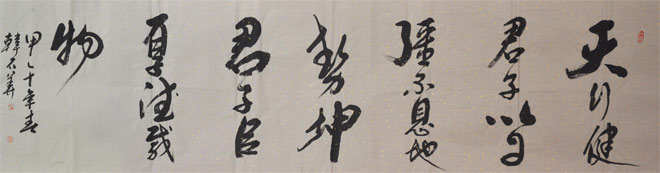 天行健
君子以自
彊不息地
勢坤
君子以
厚德載
物
甲午年春
韓